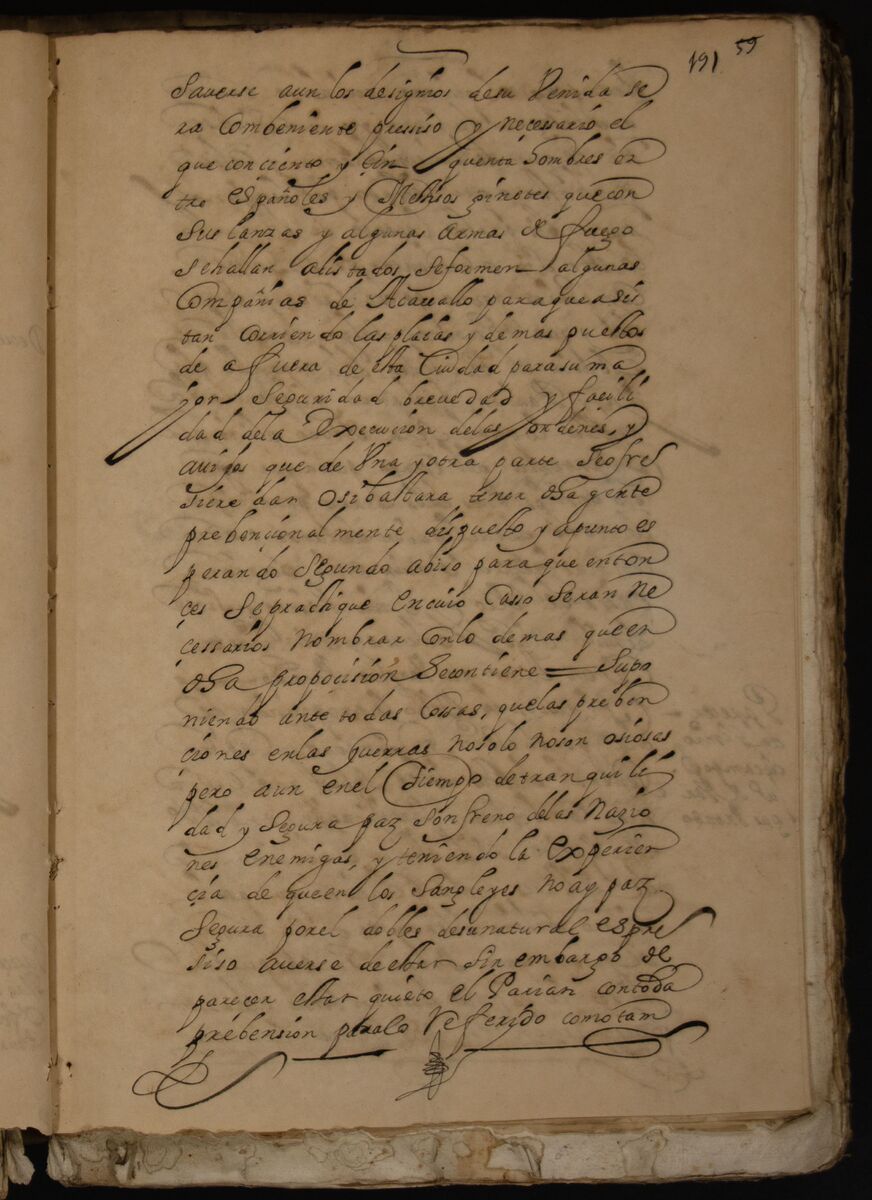 191 59
sauerse aun los designios desu Venida se
ra Combeniente presiso y necessario el
que con ciento y cin quenta hombres en
tre españoles y Mestisos ginetes que con
sus lanzas y algunas armas de fuego
se hallan alistados, se formen algunas
Compañias de Acauallo para que asis
tan corriendo las plaias y demas puestos
de a fuera de esta Ciudad para su ma
ior seguridad breuedad y facili
dad dela Execucion delas ordenes, y
auisos que de Vna y otra parte se ofres
siere dar o si bastara tener dha gente
prebencionalmente dispuesto y apunto es
perando segundo abiso para que enton
ces se pradique en cuio Casso seran ne
cessarios nombrar con lo demas que en
dha propocision se contiene = Supo
niendo ante todas Cossas, que las preben
ciones en las guerras no solo no son osiosas
pero aun en el Tiempo de tranquili
dad y segura paz son freno delas Nazio
nes enemigas, y teniendo la experien
cia de que en los Sangleyes no ay paz
segura por el dobles de su natural es pre
siso auerse de estar sin embargo de
parecer estar quieto el Parian con toda
prebension para lo Referido como tam